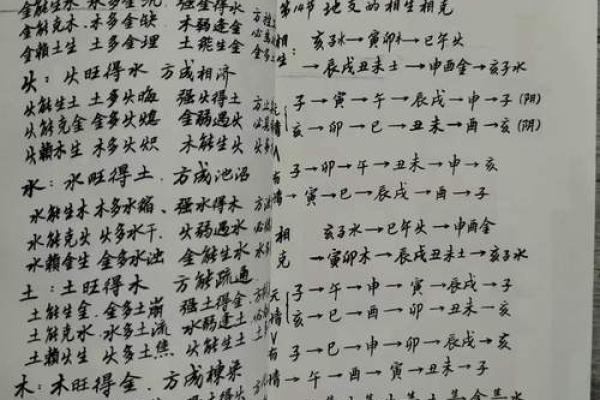 金能生水 水多金沉 强金得水
金能克木 木多金缺 木弱逢金
金賴土生 土多金埋 土能生金
火：火旺得水 方成相济
火能生土 土多火晦 强火得土
火能克金 金多火熄 金弱遇火
火賴木生 木多火炽 木能生火
水：水旺得土 方成池沼
水能生木 木多水缩 强水得木
水能克火 火多水干 火弱遇水
水賴金生 金多水浊 金能生水
土：土旺得木 方能疏通
土能生金 金多土崩 强土得金
土能克水 水多土流 水弱逢土
土賴火生 火多土焦 火能生土
木：木旺得金 方成棟梁
第14节 地支的相生相克
相生：亥子水→寅卯木→巳午火
→辰戌丑未土→申酉金→亥子水
子→寅→午→辰戌→申→子(阴)
亥→卯→巳→丑未→酉→亥(阴)
子→卯→午→丑未→申→亥
寅→巳→辰戌→酉→子
相克 亥子水→巳午火→申酉金
→寅卯木→辰戌丑未土→亥子水
子→午→申→寅→辰戌→子
亥→巳→酉→卯→丑未→亥
子→巳→申→卯→辰戌→亥
午→酉→寅→丑未→子